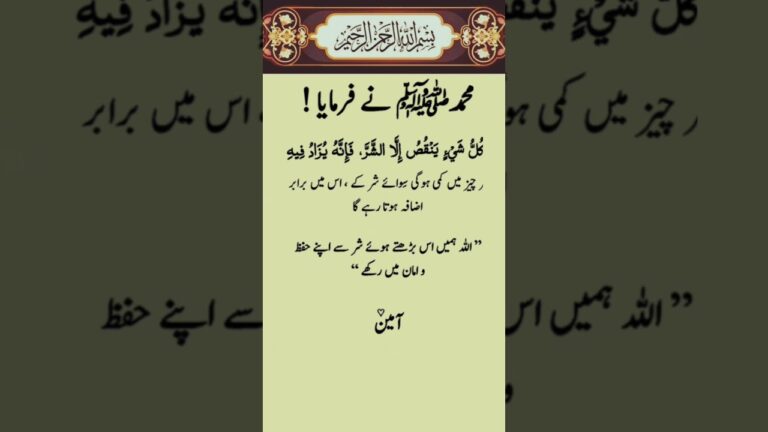 بسم الله الرحمن الرحيم
محمد ﷺ نے فرمایا !
كُلُّ شَيْءٍ يَنْقُصُ إِلَّا الشَّرَّ، فَإِنَّهُ يُزَادُ فِيهِ
ر چیز میں کمی ہوگی سوائے شر کے ، اس میں برابر
اضافہ ہوتا رہے گا
” اللہ ہمیں اس بڑھتے ہوئے شر سے اپنے حفظ
و امان میں رکھے “
آمین